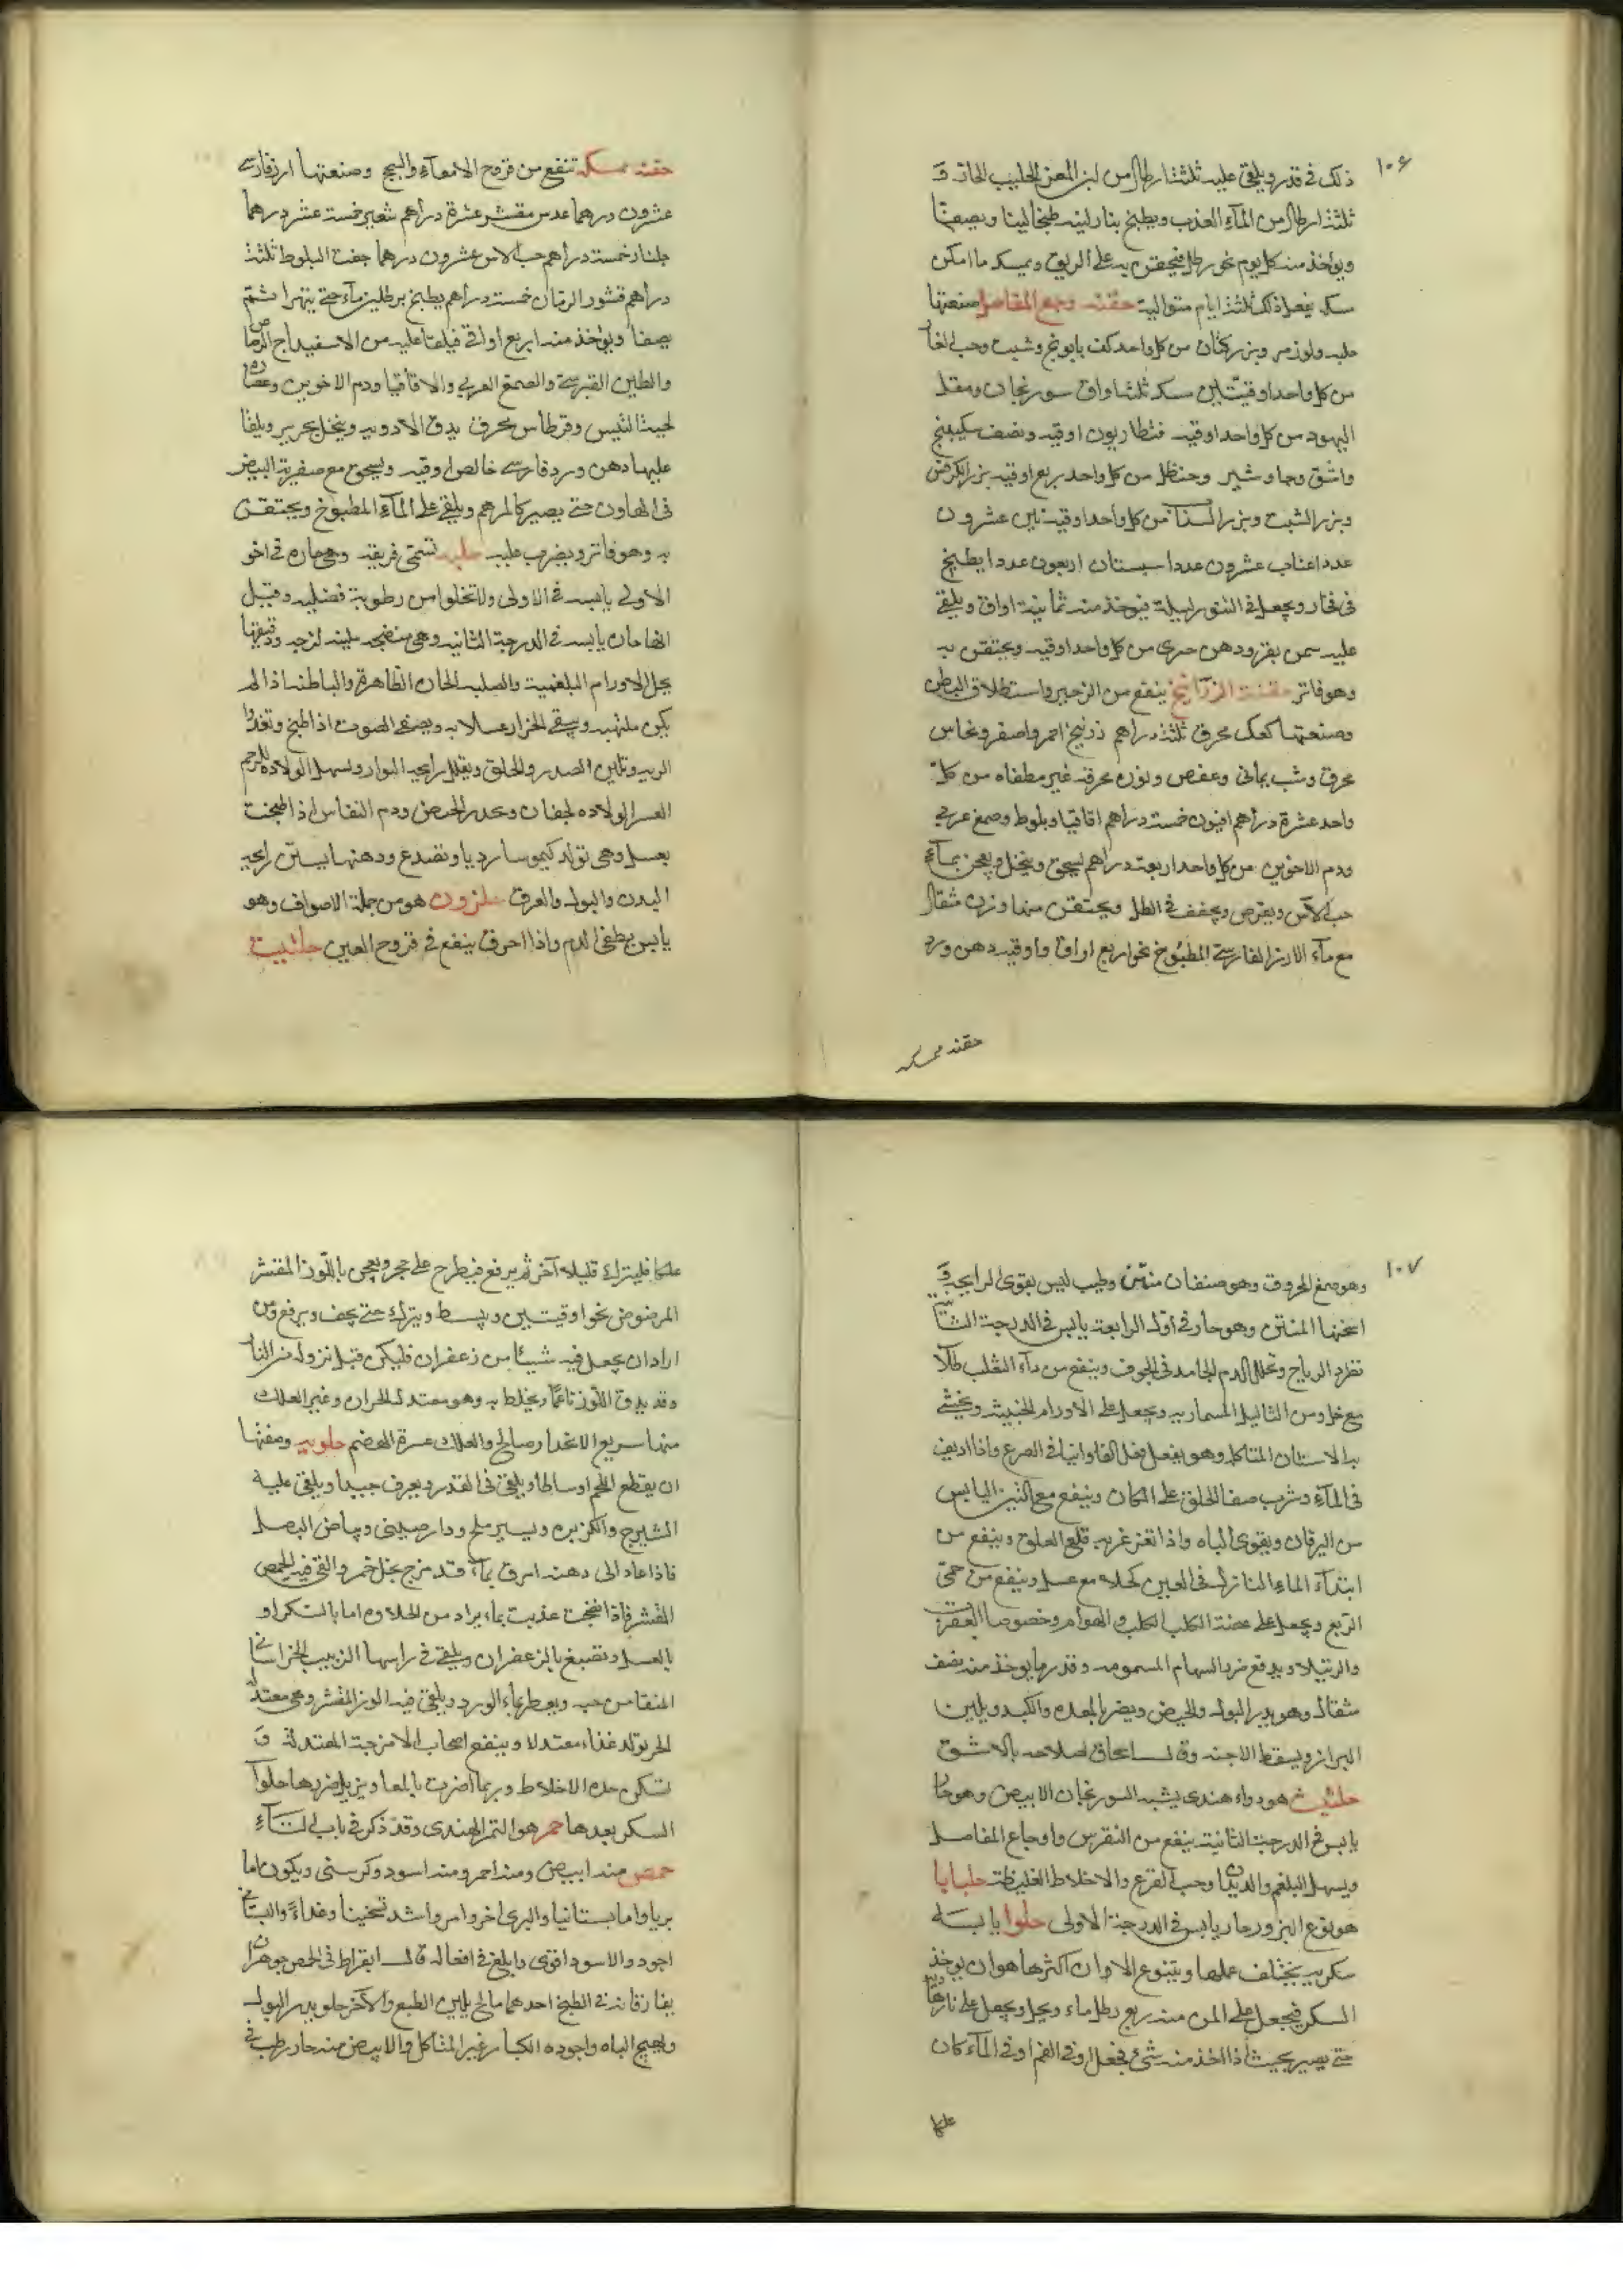 ١٠٦
ذلك في قدر ويلقى عليه ثلثة ارطال من لبن المعز الحليب الحاد و
ثلثة ارطال من المآء العذب ويطبخ بنار لينه طبخا لينا ويصفا
ويوخذ منه كل يوم نحو رطل فيحقن به على الريق ويمسكه ما امكن
يفعل ذلك ثلثة ايام متواليه حقنه وجع المفاصل صنعتها
حلبه ولوز مر وبزر كتان من كل واحد كف بابونج وشبت وحب الغار
من كل واحد اوقيتين ثلثة اواق سورنجان ومقل
اليهود من كل واحد اوقيه قنطاريون اوقيه ونصف سكبينج
واشق وجاوشير وحنظل من كل واحد ربع اوقيه بزر الكرفس
وبزر الشبت وبزر السذاب من كل واحد اوقيتين عشرون
عددا عناب عشرون عددا سبستان اربعون عددا يطبخ
في فخار ويجعل في التنور ليلة فيوخذ منه ثمانية اواق ويلقى
عليه سمن بقر ودهن من كل واحد اوقيه ويحتقن به
وهو فاتر حقنة الزرانيخ ينفع من الزحير واستطلاق البطن
وصنعتها كعك محرق ثلثة دراهم زرنيخ احمر واصفر ونحاس
محرق وشب يماني وعفص ونوره محرقه غير مطفاه من كل
واحد عشرة دراهم افيون خمسة دراهم اقاقيا وبلوط وصمغ عربي
ودم الاخوين من كل واحد اربعة دراهم يسحق وينخل ويعجن بمآء
حب الآس ويقرص ويجفف في الظل ويحتقن منها وزن مثقال
مع مآء الارز الفارسي المطبوخ نحو اربع اواق واوقيه دهن ورد
حقنه ممسكه
حقنه ممسكه تنفع من قروح الامعآء والسحج وصنعتها ارز فارسي
عشرون درهما عدس مقشر عشرة دراهم شعير خمسة عشر درهما
جلنار خمسة دراهم حب الاس عشرون درهما جفت البلوط ثلثة
دراهم قشور الرمان خمسة دراهم يطبخ برطلين مآء حتى يتهرا ثم
يصفا ويؤخذ منه اربع اواقي فيلقا عليه من الاسفيداج الرصاص
والطين القبرسي والصمغ العربي والاقاقيا ودم الاخوين وعصاره
لحية التيس وقرطاس محرق يدق الادويه وينخل بحرير ويلقا
عليها دهن ورد فارسي خالص اوقيه ويسحق مع صفرية البيض
في الهاون حتى يصير كالمرهم ويلقى على المآء المطبوخ ويحتقن
به وهو فاتر ويضرب عليه حلبه تسمى فريقه وهي حاره في اخر
الاولى يابسه في الاولى ولا تخلوا من رطوبة فضليه وقيل
انها حاره يابسه في الدرجة الثانيه وهي منضجه ملينه لزجه ودقيقها
يحل الاورام البلغمية والصلبه الحاره الظاهرة والباطنه اذا لم
يكن ملتهبه ويصفى الصوت اذا طبخ وتغذوا
الريه وتلين الصدر والحلق ويسهل الولاده للرحم
العسر الولاده لجفاف ويحدر الحيض ودم النفاس اذا طبخت
بعسل وهي تولد كيموسا رديا وتصدع ودهنها ينتن رايحه
البدن والبول والعرق حلزون هو من جملة الاصداف وهو
يابس يطفئ الدم واذا احرق ينفع في قروح العين حلتيت
١٠٧
وهو صمغ المحروث وهو صنفان منتن وطيب ليس بقوى الرايحه و
اسخنها المنتن وهو حار في أول الرابعه يابس في الدرجة الثانيه
تطرد الرياح وتحلل الدم الجامد في الجوف وينفع من داء الثعلب طلآء
مع خل ومن الثاليل المسماريه ويجعل على الاورام الخبيثه ويحشى
به الاسنان المتاكله وهو يفعل فعل الفاوانيا في الصرع واذا اديف
في المآء وشرب صفا الحلق على المكان وينفع مع التين اليابس
من اليرقان ويقوى الباه واذا تغرغر به قلع العلق وينفع من
ابتدآء الماء النازل في العين كحلا مع عسل وينفع من حمى
الربع ويجعل على عضة الكلب الكلب والهوام وخصوصا العقرب
والرتيلا ويدفع ضرر السهام المسمومه وقدر ما يوخذ منه نصف
مثقال وهو يدر البول والحيض ويضر بالمعده والكبد ويلين
البراز ويسقط الاجنه وقال اسحاق اصلاحه بالاشق
حلثيث هو دواء هندى يشبه السورنجان الابيض وهو حار
يابس في الدرجة الثانية ينفع من النقرس واوجاع المفاصل
ويسهل البلغم والديدان وحب القرع والاخلاط الغليظه حلبابا
هو نوع البزور حار يابس في الدرجة الاولى حلوا يابسه
سكريه يختلف عملها ويتنوع الاوان اكثرها هو ان يوخذ
السكر فيجعل على المن منه ربع رطل ماء ويحل ويجعل على نار هاديه
حتى يصير بحيث اذا اخذ منه شئ فجعل في الفم او في المآء كان
علكا
علكا فليترك قليلا آخر ثم يرفع فيطرح على حجر ويعجن باللوز المقشر
المرضوض نحو اوقيتين ويبسط ويترك حتى يجف ويرفع ومن
اراد ان يجعل فيه شيئا من زعفران فليكن قبل نزوله من النار
وقد يدق اللوز ناعما ويخلط به وهو معتدل الحراره وغير العلك
منها سريع الانحدار صالح والعلك عسرة الهضم حلويه وصفتها
ان يقطع اللحم اوساطا ويلقى في القدر ويعرق جيدا ويلقى عليه
الشيرج والكزبره ويسير ملح ودارصينى وبياض البصل
فاذا عاد الى دهنه امرق بمآء قد مزج بخل خمر والقى فيه الحمص
المقشر فاذا نضجت عذبت بما يراد من الحلاوه اما بالسكر او
بالعسل وتصبغ بالزعفران ويلقى في راسها الزبيب الخراساني
المنقا من حبه ويعطر بماء الورد ويلقى فيه الوز المقشر وهى معتدلة
الحر تولد غذاء معتدلا وينفع اصحاب الامزجة المعتدلة و
تسكن حدة الاخلاط وربما اضرت بالمعا ويزيل ضررها حلوآ
السكر بعدها حمر هو التمر الهندى وقد ذكر في باب التآء
حمص منه ابيض ومنه احمر ومنه اسود وكرسنى ويكون اما
بريا واما بستانيا والبرى احر وامر واشد تسخينا وغذاء والبستاني
اجود والاسود اقوى وابلغ في افعاله قال ابقراط في الحمص جوهران
يفارقانه في الطبخ احدهما مالح يلين الطبع والآخر حلو يدر البول
ويهيج الباه واجوده الكبار غير المتاكل والابيض منه حار رطب في